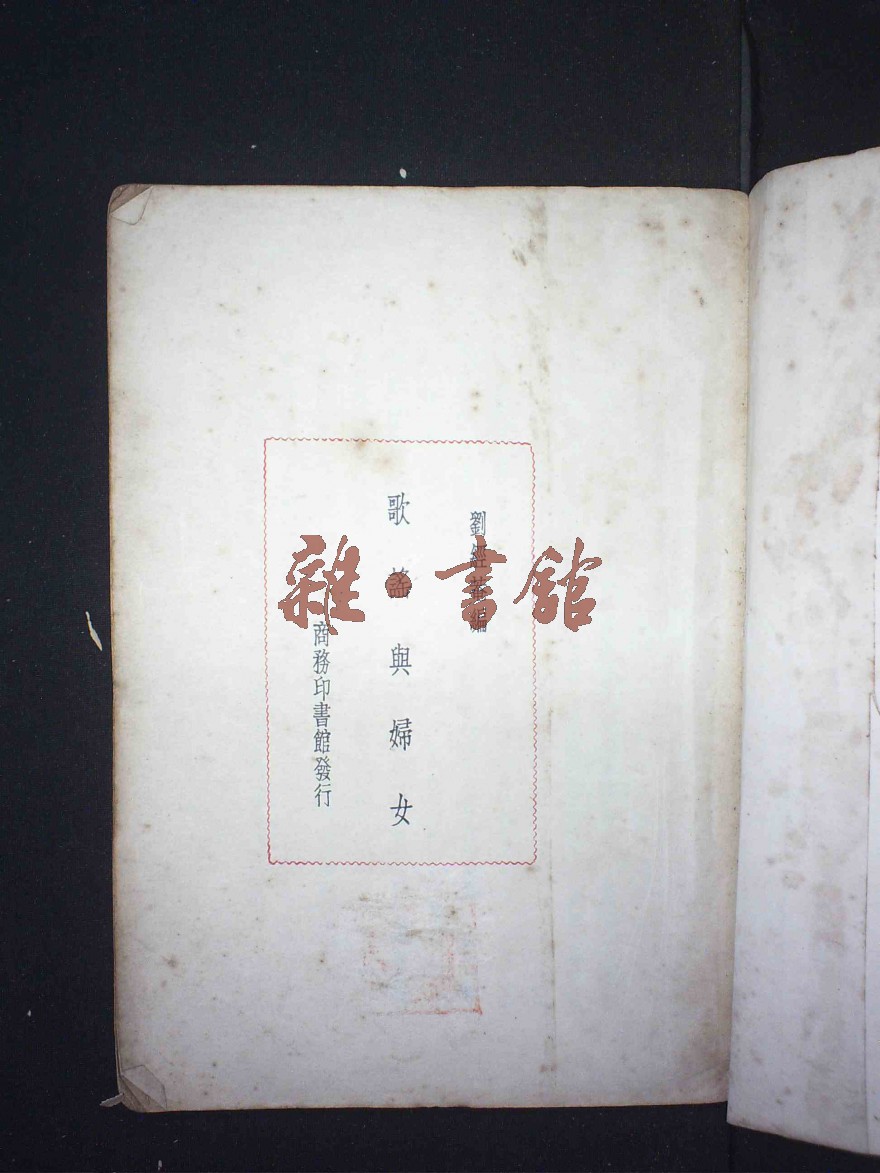 劉經菴編
歌謠與婦女
商務印書館發行
雜·書館